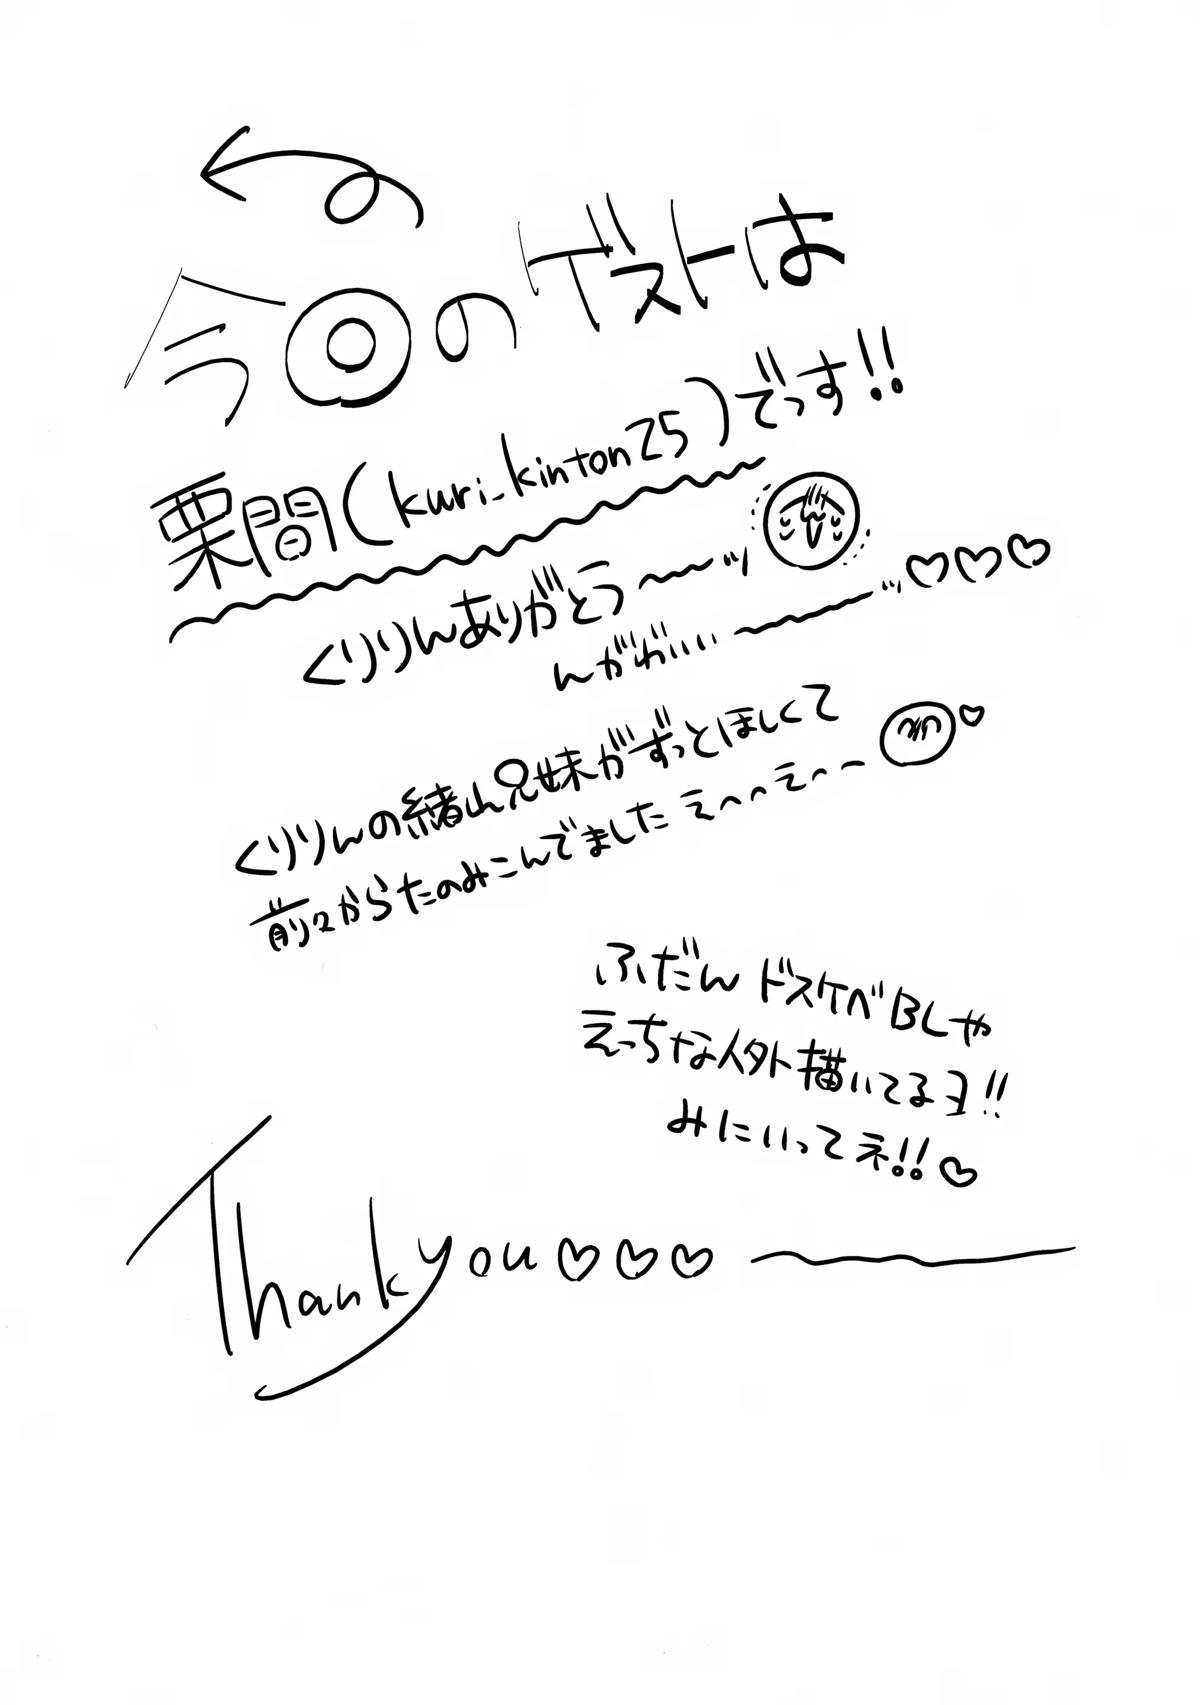 今回のゲストは
栗間(kuri_kinton25)でっす!!
くりりんありがとう〜〜ッ
んがわいい〜〜〜ッ♡♡♡
くりりんの緒山兄妹がずっとほしくて
前々からたのみこんでました えへへえへへ ♡
ふだん ドスケベBLや
えっちな人外描いてるヨ!!
みにいってネ!!♡
Thank you♡♡♡